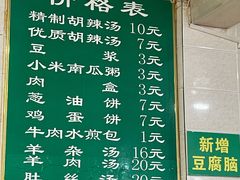 价格表
精制胡辣汤 10元
优质胡辣汤 7元
豆浆 3元
小米南瓜粥 3元
肉盒 3元
葱油饼 7元
鸡蛋饼 7元
牛肉水煎包 1元
羊杂汤 16元
羊肚丝汤 20元
新增
豆腐脑